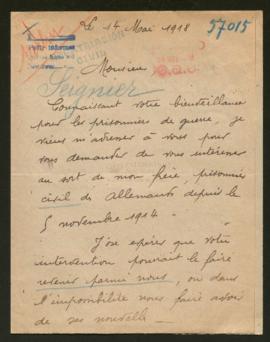 Le 14 Mai 1918
57015
Monsieur
Seignier
Connaissant votre bienveillance
pour les prisonniers de guerre, je
viens m'adresser à vous pour
vous demander de vous intéresser
au sort de mon frère, prisonnier
civil des Allemands depuis le
5 novembre 1914.
J'ose espérer que votre
intervention pourrait le faire
revenir parmi nous, ou dans
l'impossibilité nous faire avoir
de ses nouvelle